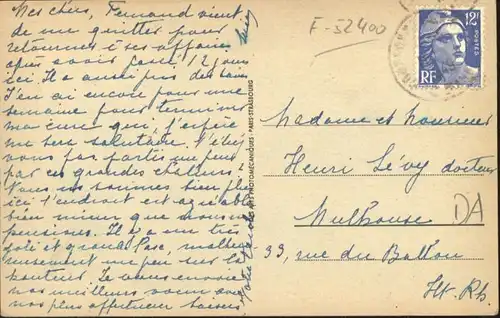 Mes chers, Fernand vient
de me quitter pour
retourner à ses affaires
après avoir passé 12 jours
ici. Il a aussi pris des bains
J'en ai encore pour une
semaine pour terminer
ma cure qui, j'espère
me sera salutaire. N'êtes
vous pas partis un peu
par ces grandes chaleurs?
Nous nous sommes bien plu
ici l'endroit est agréable
bien mieux que nous nous
pensions. Il y a un très
joli et grand Parc, malheu-
reusement un peu sur la
hauteur. Je vous envoie
nos meilleurs vœux avec
nos plus affectueux baisers.
F-52400
12F
POSTES
RF
PHOTOMÉCANIQUES - PARIS-STRASBOURG
Madame et Monsieur
Henri Lévy docteur
Mulhouse
DA
39, rue du Ballon
Ht. Rh.